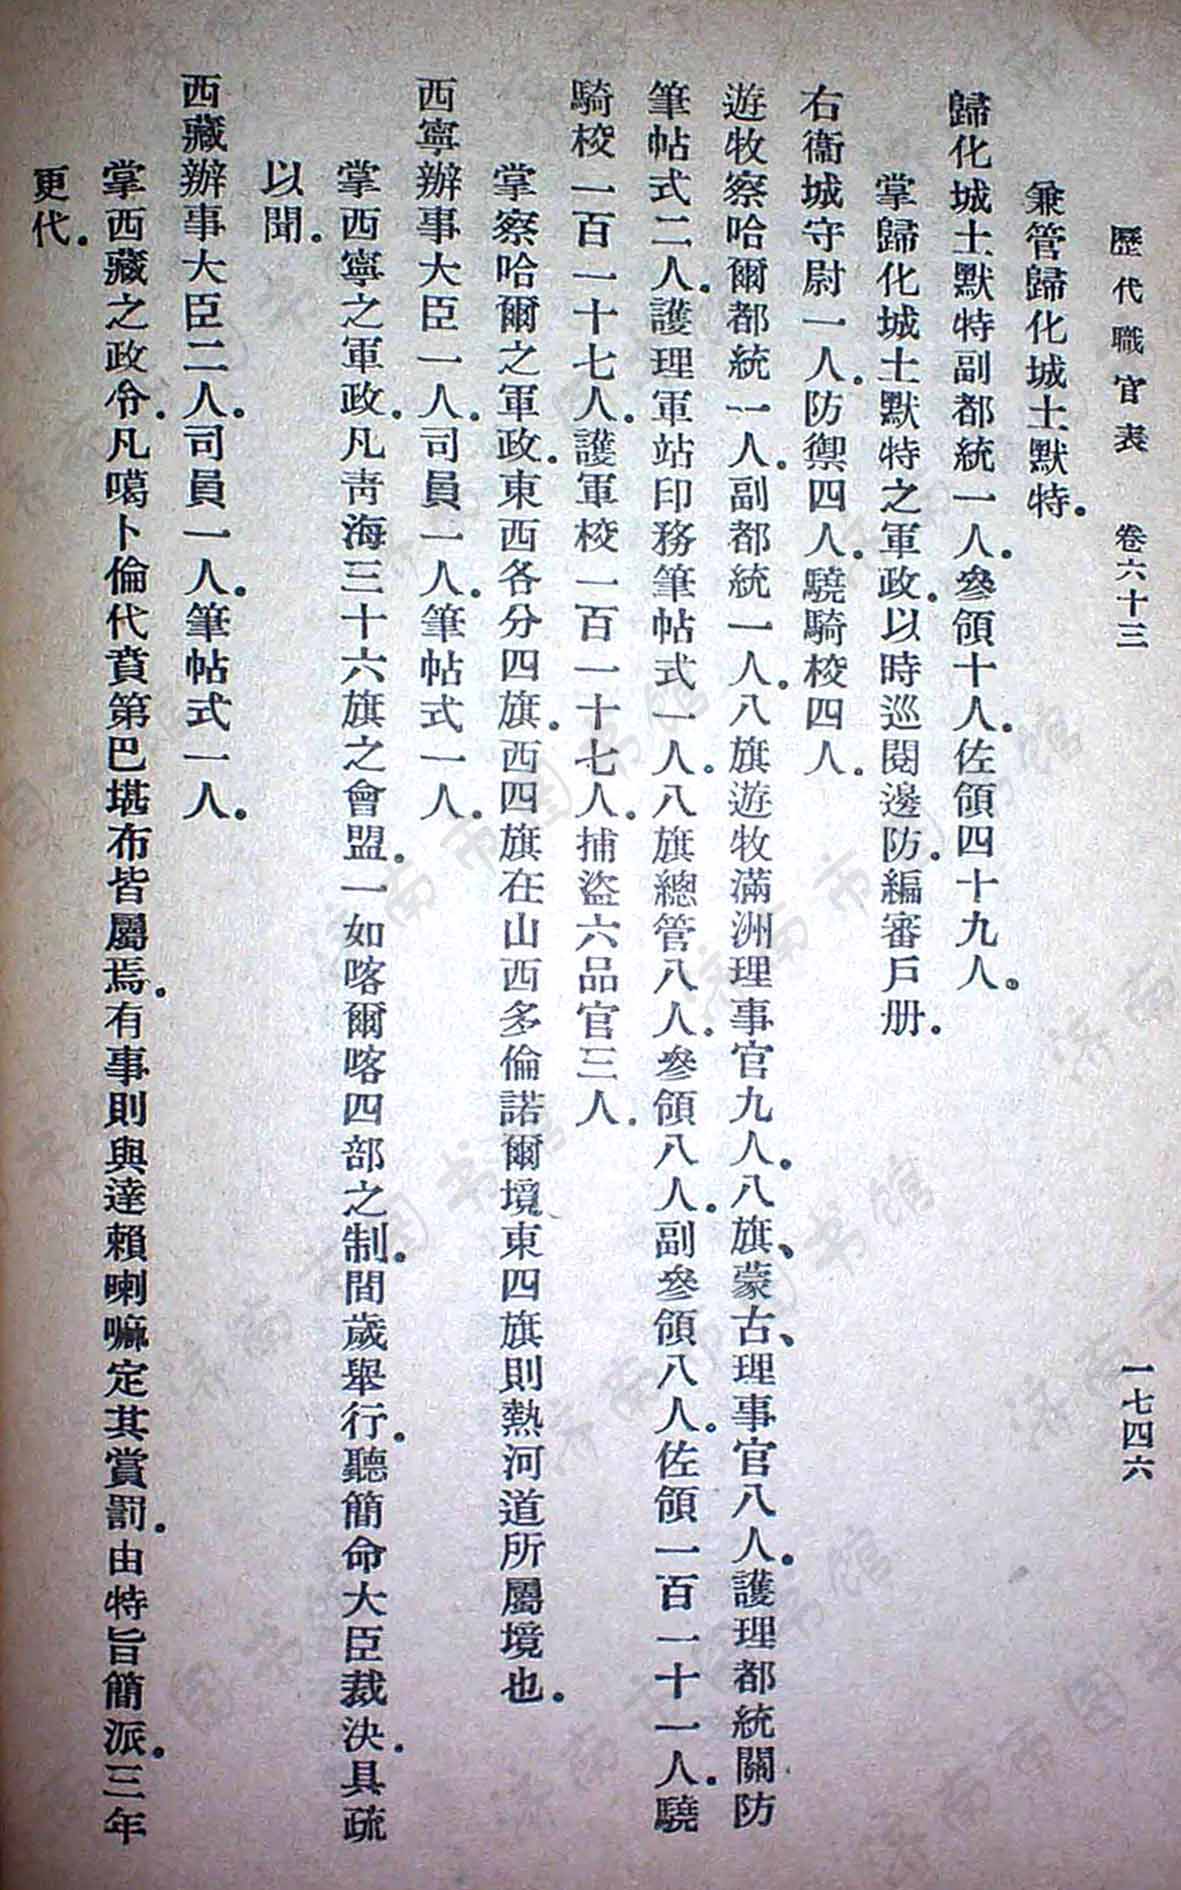 歷代職官表 卷六十三 一七四六
兼管歸化城土默特。
歸化城土默特副都統一人。參領十人。佐領四十九人。
掌歸化城土默特之軍政。以時巡閱邊防。編審戶册。
右衞城守尉一人。防禦四人。驍騎校四人。
遊牧察哈爾都統一人。副都統一人。八旗遊牧滿洲理事官九人。八旗、蒙古、理事官八人。護理都統關防
筆帖式二人。護理軍站印務筆帖式一人。八旗總管八人。參領八人。副參領八人。佐領一百一十一人。驍
騎校一百一十七人。護軍校一百一十七人。捕盜六品官三人。
掌察哈爾之軍政。東西各分四旗。西四旗在山西多倫諾爾境。東四旗則熱河道所屬境也。
西寧辦事大臣一人。司員一人。筆帖式一人。
掌西寧之軍政。凡靑海三十六旗之會盟。一如喀爾喀四部之制。間歲舉行。聽簡命大臣裁決。具疏
以聞。
西藏辦事大臣二人。司員一人。筆帖式一人。
掌西藏之政令。凡噶卜倫代賁第巴堪布皆屬焉。有事則與達賴喇嘛定其賞罰。由特旨簡派。三年
更代。
濟南市图书馆